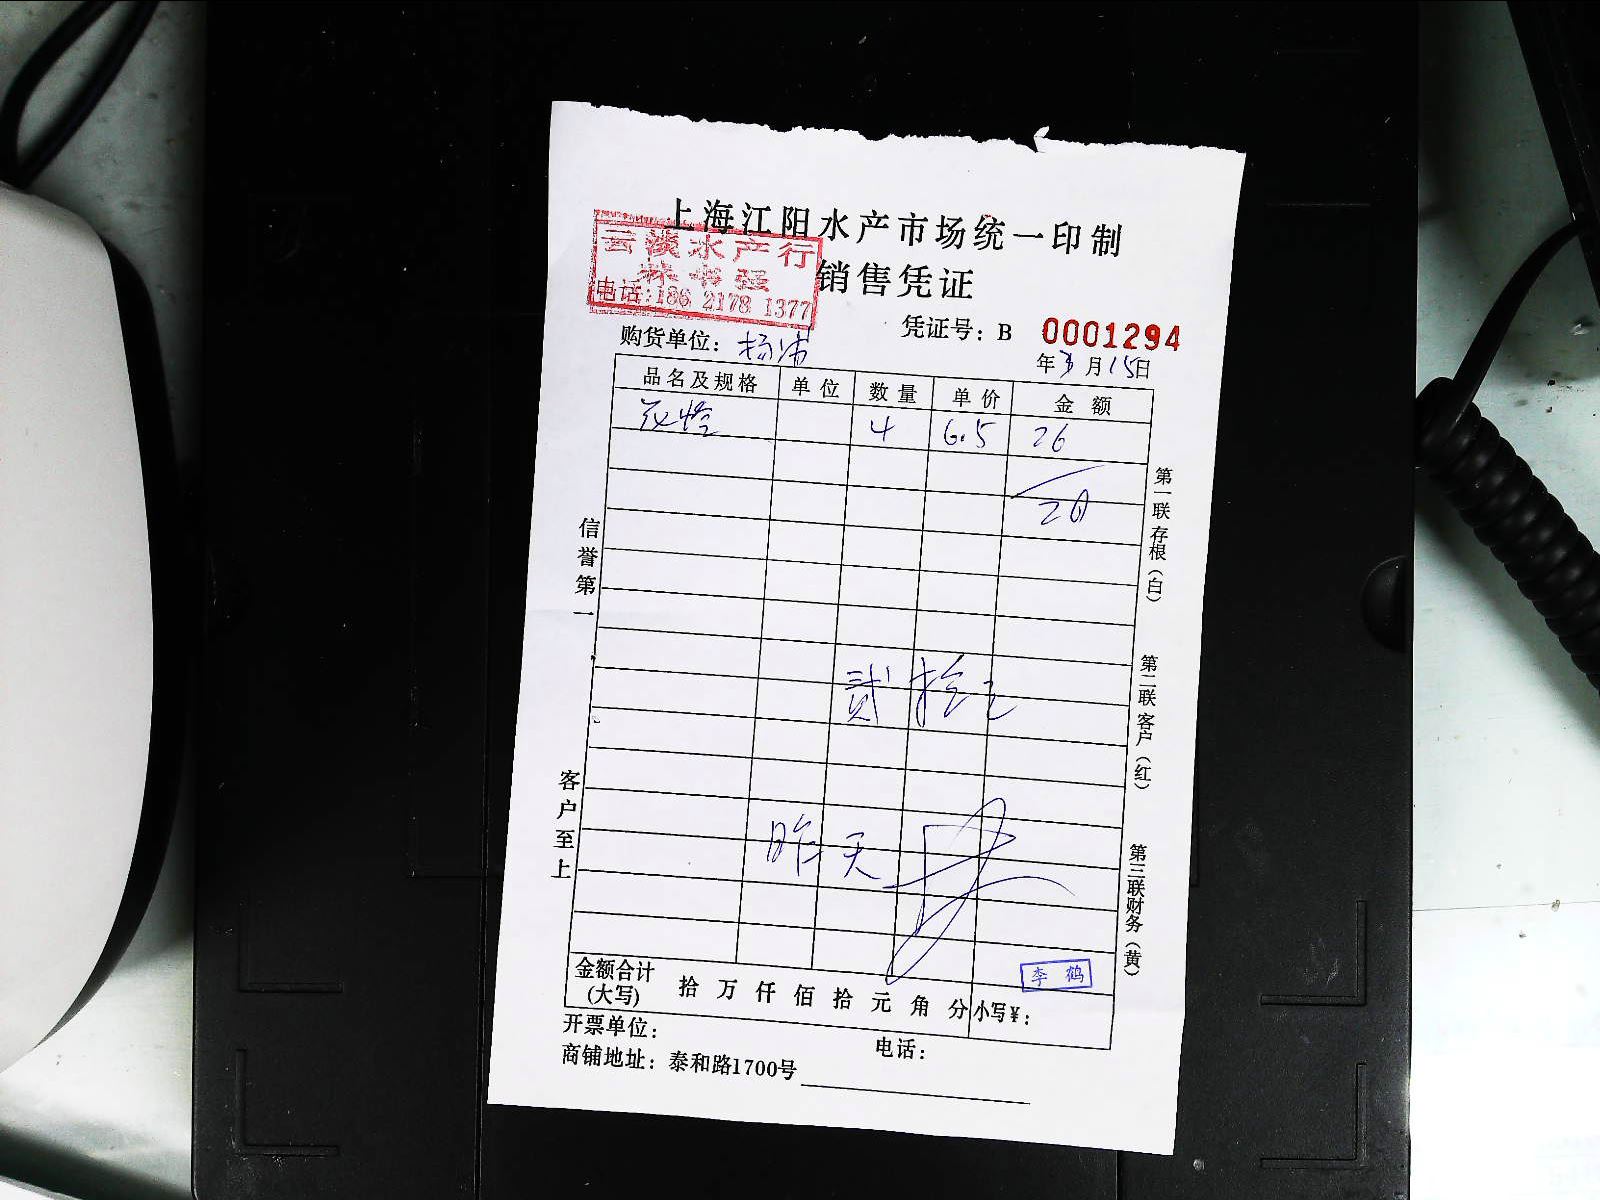 上海江阳水产市场统一印制
销售凭证
云淡水产行
林书强
电话:186 2178 1377
凭证号: B 0001294
购货单位: 杨浦
年 3 月 15 日
品名及规格 单位 数量 单价 金额
花蛤 4 6.5 26
贰拾
昨天
信誉第一
客户至上
第一联存根(白)
第二联客户(红)
第三联财务(黄)
李鹤
金额合计(大写) 拾 万 仟 佰 拾 元 角 分 小写¥:
开票单位: 电话:
商铺地址: 泰和路1700号